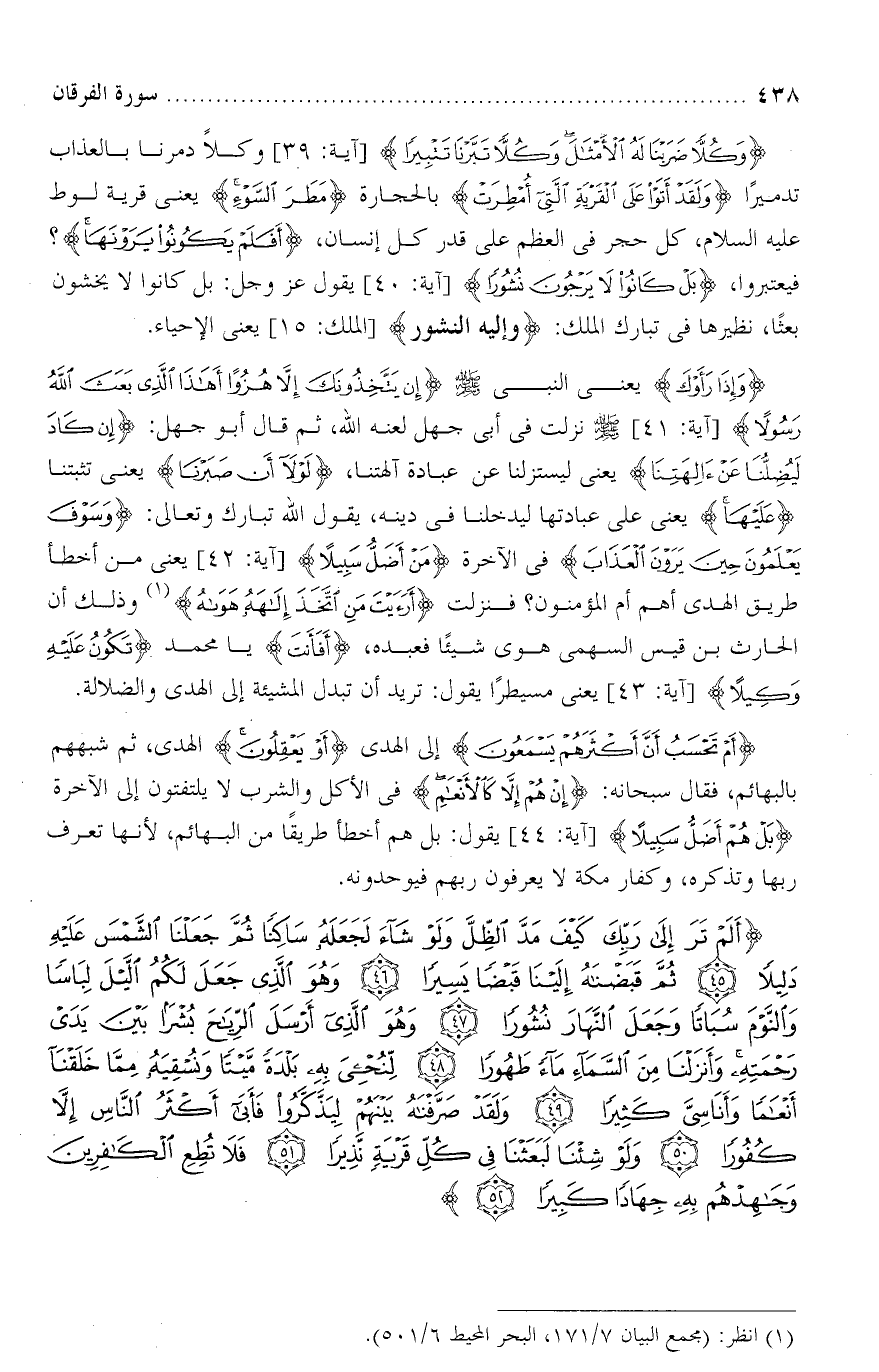 ٤٣٨ ........................................................................ سورة الفرقان
﴿وَكُلًّا ضَرَبْنَا لَهُ الْأَمْثَالَ وَكُلًّا تَبَّرْنَا تَتْبِيرًا﴾ [آية: ٣٩] وكـلاً دمرنـا بـالعذاب
تدمـيرًا ﴿وَلَقَدْ أَتَوْا عَلَى الْقَرْيَةِ الَّتِي أُمْطِرَتْ﴾ بالحجارة ﴿مَطَرَ السَّوْءِ﴾ يعنـى قرية لـوط
عليه السلام، كل حجر فى العظم على قدر كـل إنسـان، ﴿أَفَلَمْ يَكُونُوا يَرَوْنَهَا﴾؟
فيعتبروا، ﴿بَلْ كَانُوا لَا يَرْجُونَ نُشُورًا﴾ [آية: ٤٠] يقول عز وجل: بل كانوا لا يخشون
بعثًا، نظيرها فى تبارك الملك: ﴿وإليه النشور﴾ [الملك: ١٥] يعنى الإحياء.
﴿وَإِذَا رَأَوْكَ﴾ يعنــى النبــى ﷺ ﴿إِن يَتَّخِذُونَكَ إِلَّا هُزُوًا أَهَٰذَا الَّذِي بَعَثَ اللَّهُ
رَسُولًا﴾ [آية: ٤١] ﷺ نزلت فى أبى جـهل لعنـه الله، ثـم قـال أبـو جهل: ﴿إِن كَادَ
لَيُضِلُّنَا عَنْ ءَالِهَتِنَا﴾ يعنى ليستزلنا عن عبادة آلهتنـا، ﴿لَوْلَا أَن صَبَرْنَا﴾ يعنـى تثبتنـا
﴿عَلَيْهَا﴾ يعنى على عبادتها ليدخلنـا فـى دينـه، يقـول الله تبـارك وتعـالى: ﴿وَسَوْفَ
يَعْلَمُونَ حِينَ يَرَوْنَ الْعَذَابَ﴾ فى الآخرة ﴿مَنْ أَضَلُّ سَبِيلًا﴾ [آية: ٤٢] يعنى مـن أخطـأ
طريـق الهـدى أهـم أم المؤمنون؟ فـنزلت ﴿أَرَءَيْتَ مَنِ اتَّخَذَ إِلَٰهَهُ هَوَاهُ﴾(١) وذلـك أن
الحارث بـن قيـس السـهمى هـوى شـيئًا فعبـده، ﴿أَفَأَنتَ﴾ يـا محمـد ﴿تَكُونُ عَلَيْهِ
وَكِيلًا﴾ [آية: ٤٣] يعنى مسيطرًا يقول: تريد أن تبدل المشيئة إلى الهدى والضلالة.
﴿أَمْ تَحْسَبُ أَنَّ أَكْثَرَهُمْ يَسْمَعُونَ﴾ إلى الهدى ﴿أَوْ يَعْقِلُونَ﴾ الهدى، ثم شبههم
بالبهائم، فقال سبحانه: ﴿إِنْ هُمْ إِلَّا كَالْأَنْعَامِ﴾ فى الأكل والشرب لا يلتفتون إلى الآخرة
﴿بَلْ هُمْ أَضَلُّ سَبِيلًا﴾ [آية: ٤٤] يقول: بل هم أخطأ طريقًا من البهائم، لأنـها تعرف
ربها وتذكره، وكفار مكة لا يعرفون ربهم فيوحدونه.
﴿أَلَمْ تَرَ إِلَىٰ رَبِّكَ كَيْفَ مَدَّ الظِّلَّ وَلَوْ شَاءَ لَجَعَلَهُ سَاكِنًا ثُمَّ جَعَلْنَا الشَّمْسَ عَلَيْهِ
دَلِيلًا ٤٥ ثُمَّ قَبَضْنَاهُ إِلَيْنَا قَبْضًا يَسِيرًا ٤٦ وَهُوَ الَّذِي جَعَلَ لَكُمُ اللَّيْلَ لِبَاسًا
وَالنَّوْمَ سُبَاتًا وَجَعَلَ النَّهَارَ نُشُورًا ٤٧ وَهُوَ الَّذِي أَرْسَلَ الرِّيَاحَ بُشْرًا بَيْنَ يَدَيْ
رَحْمَتِهِ وَأَنزَلْنَا مِنَ السَّمَاءِ مَاءً طَهُورًا ٤٨ لِّنُحْيِيَ بِهِ بَلْدَةً مَّيْتًا وَنُسْقِيَهُ مِمَّا خَلَقْنَا
أَنْعَامًا وَأَنَاسِيَّ كَثِيرًا ٤٩ وَلَقَدْ صَرَّفْنَاهُ بَيْنَهُمْ لِيَذَّكَّرُوا فَأَبَىٰ أَكْثَرُ النَّاسِ إِلَّا
كُفُورًا ٥٠ وَلَوْ شِئْنَا لَبَعَثْنَا فِي كُلِّ قَرْيَةٍ نَّذِيرًا ٥١ فَلَا تُطِعِ الْكَافِرِينَ
وَجَاهِدْهُم بِهِ جِهَادًا كَبِيرًا ٥٢ ﴾
(١) انظر: (مجمع البيان ١٧١/٧، البحر المحيط ٥٠١/٦).